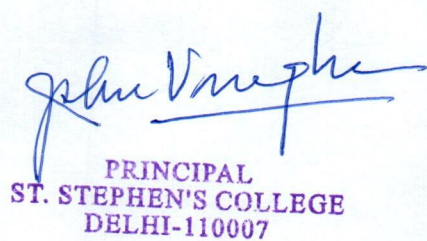 John Varughese
PRINCIPAL
ST. STEPHEN'S COLLEGE
DELHI-110007